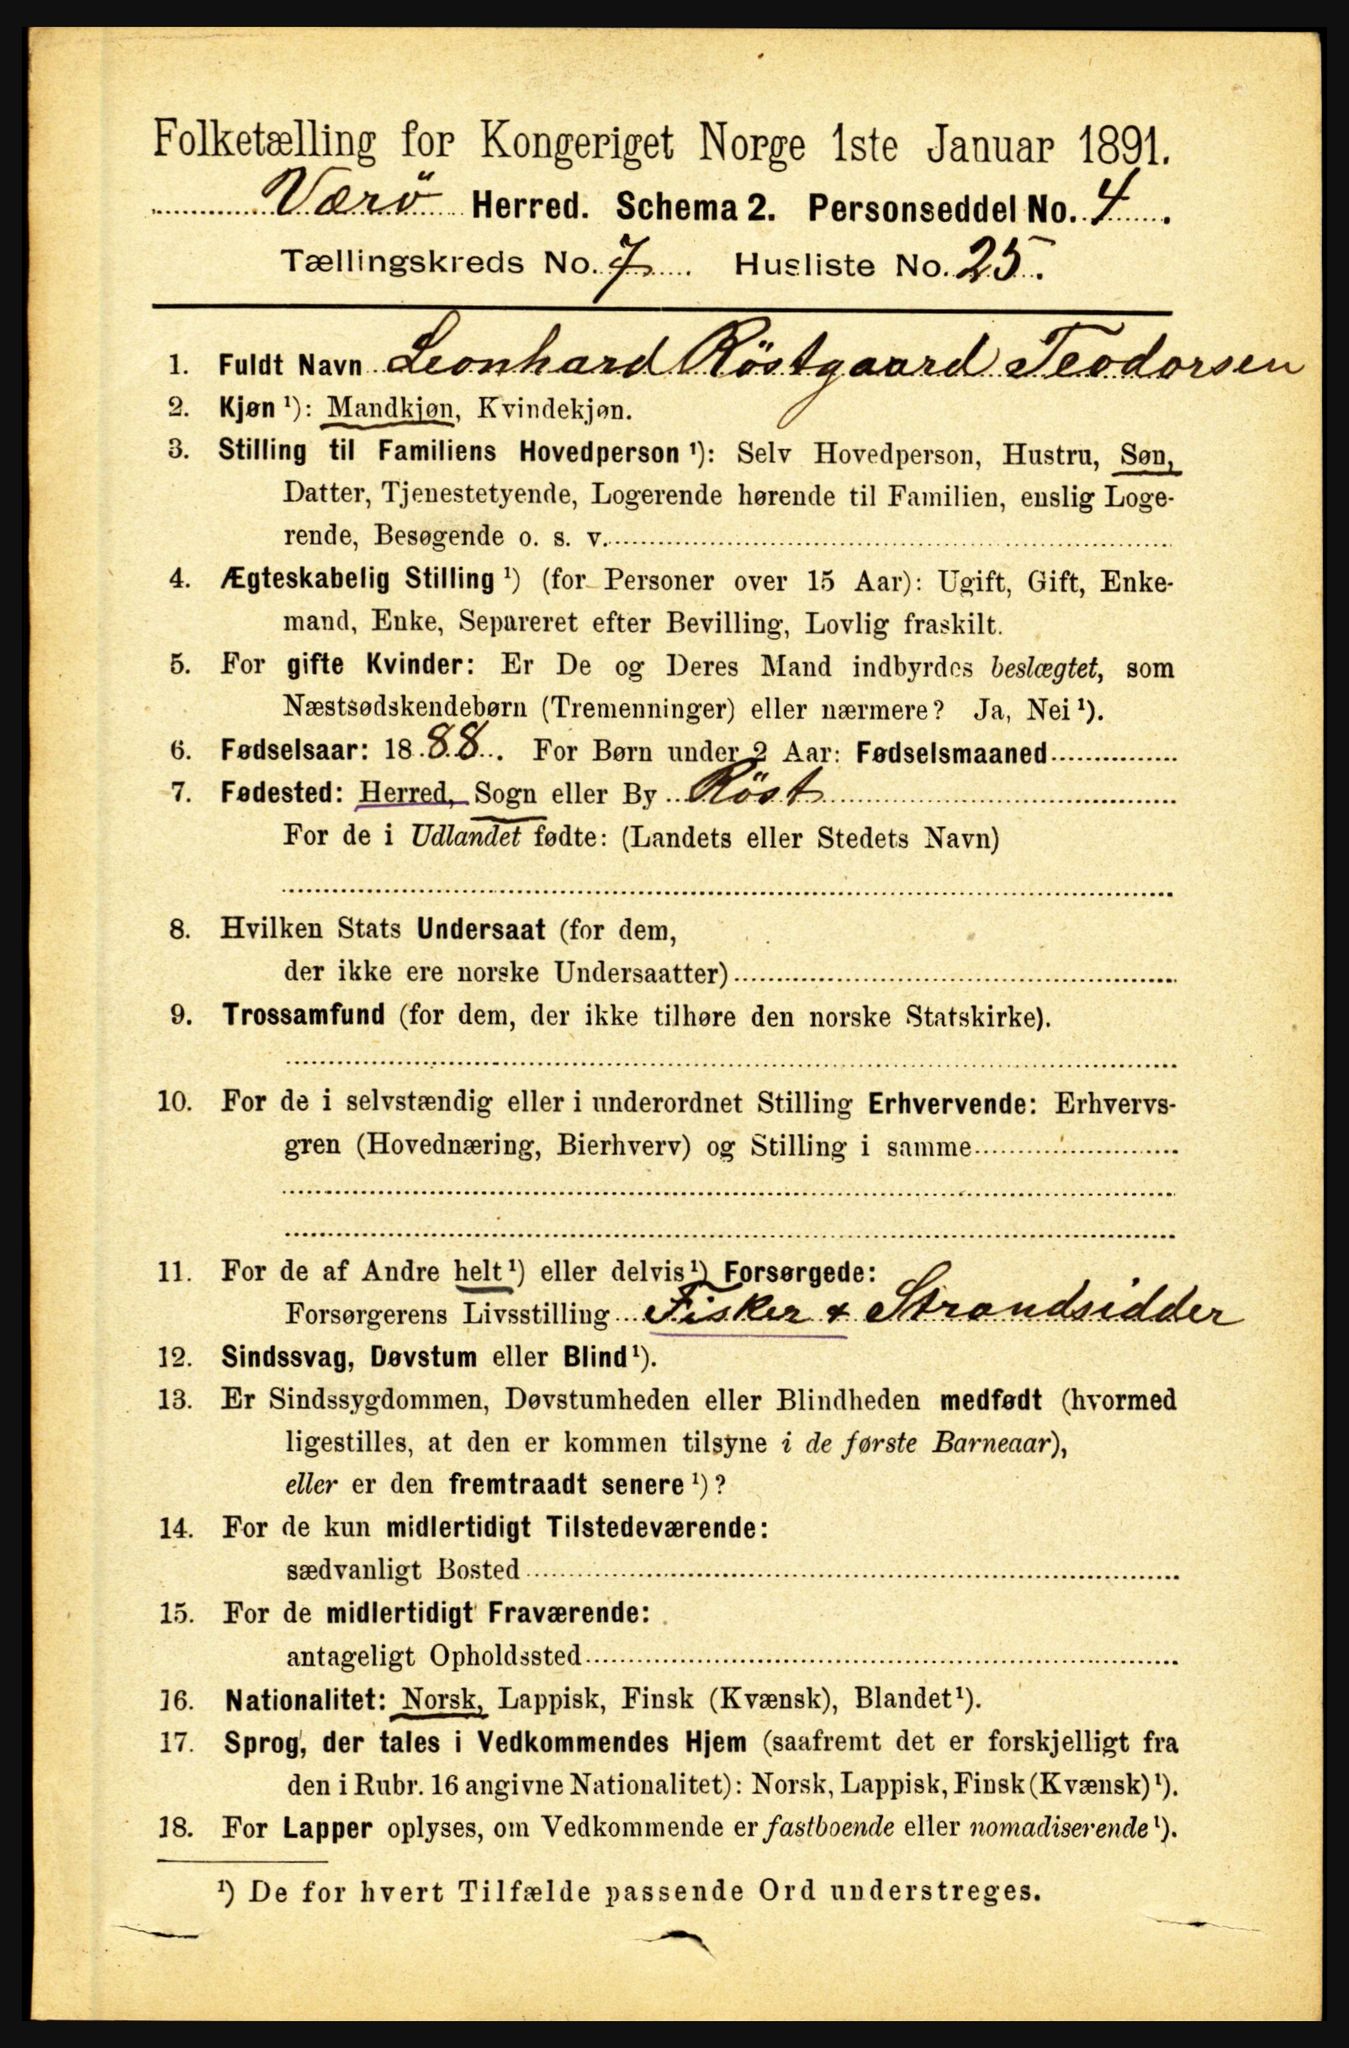 Folketælling for Kongeriget Norge 1ste Januar 1891.
Værö Herred. Schema 2. Personseddel No. 4.
Tællingskreds No. 7. Husliste No. 25.
1. Fuldt Navn Leonhard Röstgaard Teodorsen
2. Kjøn ¹): Mandkjøn, Kvindekjøn.
3. Stilling til Familiens Hovedperson ¹): Selv Hovedperson, Hustru, Søn,
Datter, Tjenestetyende, Logerende hørende til Familien, enslig Loge-
rende, Besøgende o. s. v.
4. Ægteskabelig Stilling ¹) (for Personer over 15 Aar): Ugift, Gift, Enke-
mand, Enke, Separeret efter Bevilling, Lovlig fraskilt.
5. For gifte Kvinder: Er De og Deres Mand indbyrdes beslægtet, som
Næstsødskendebørn (Tremenninger) eller nærmere? Ja, Nei ¹).
6. Fødselsaar: 1888. For Børn under 2 Aar: Fødselsmaaned
7. Fødested: Herred, Sogn eller By Röst
For de i Udlandet fødte: (Landets eller Stedets Navn)
8. Hvilken Stats Undersaat (for dem,
der ikke ere norske Undersaatter)
9. Trossamfund (for dem, der ikke tilhøre den norske Statskirke).
10. For de i selvstændig eller i underordnet Stilling Erhvervende: Erhvervs-
gren (Hovednæring, Bierhverv) og Stilling i samme
11. For de af Andre helt ¹) eller delvis ¹) Forsørgede:
Forsørgerens Livsstilling Fisker & Strandsidder
12. Sindssvag, Døvstum eller Blind ¹).
13. Er Sindssygdommen, Døvstumheden eller Blindheden medfødt (hvormed
ligestilles, at den er kommen tilsyne i de første Barneaar),
eller er den fremtraadt senere ¹)?
14. For de kun midlertidigt Tilstedeværende:
sædvanligt Bosted
15. For de midlertidigt Fraværende:
antageligt Opholdssted
16. Nationalitet: Norsk, Lappisk, Finsk (Kvænsk), Blandet ¹).
17. Sprog, der tales i Vedkommendes Hjem (saafremt det er forskjelligt fra
den i Rubr. 16 angivne Nationalitet): Norsk, Lappisk, Finsk (Kvænsk) ¹).
18. For Lapper oplyses, om Vedkommende er fastboende eller nomadiserende ¹).
¹) De for hvert Tilfælde passende Ord understreges.